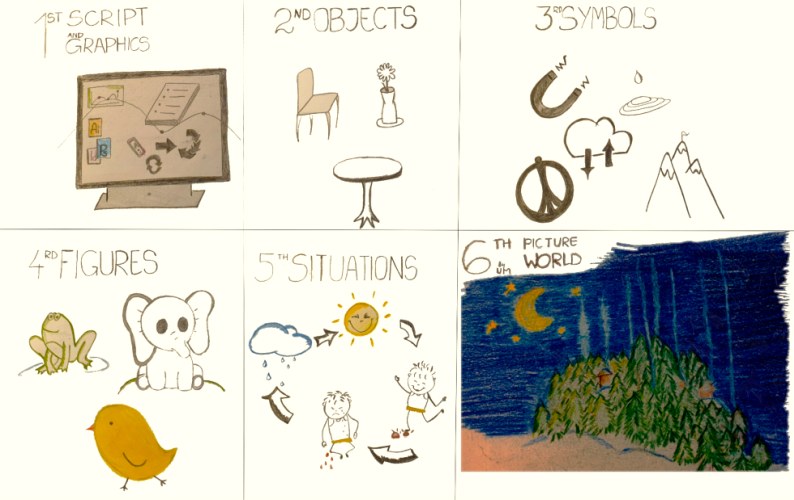 1ST SCRIPT
AND
GRAPHICS
2ND OBJECTS
3RD SYMBOLS
4RD FIGURES
5TH SITUATIONS
6TH PICTURE
WORLD
A
B